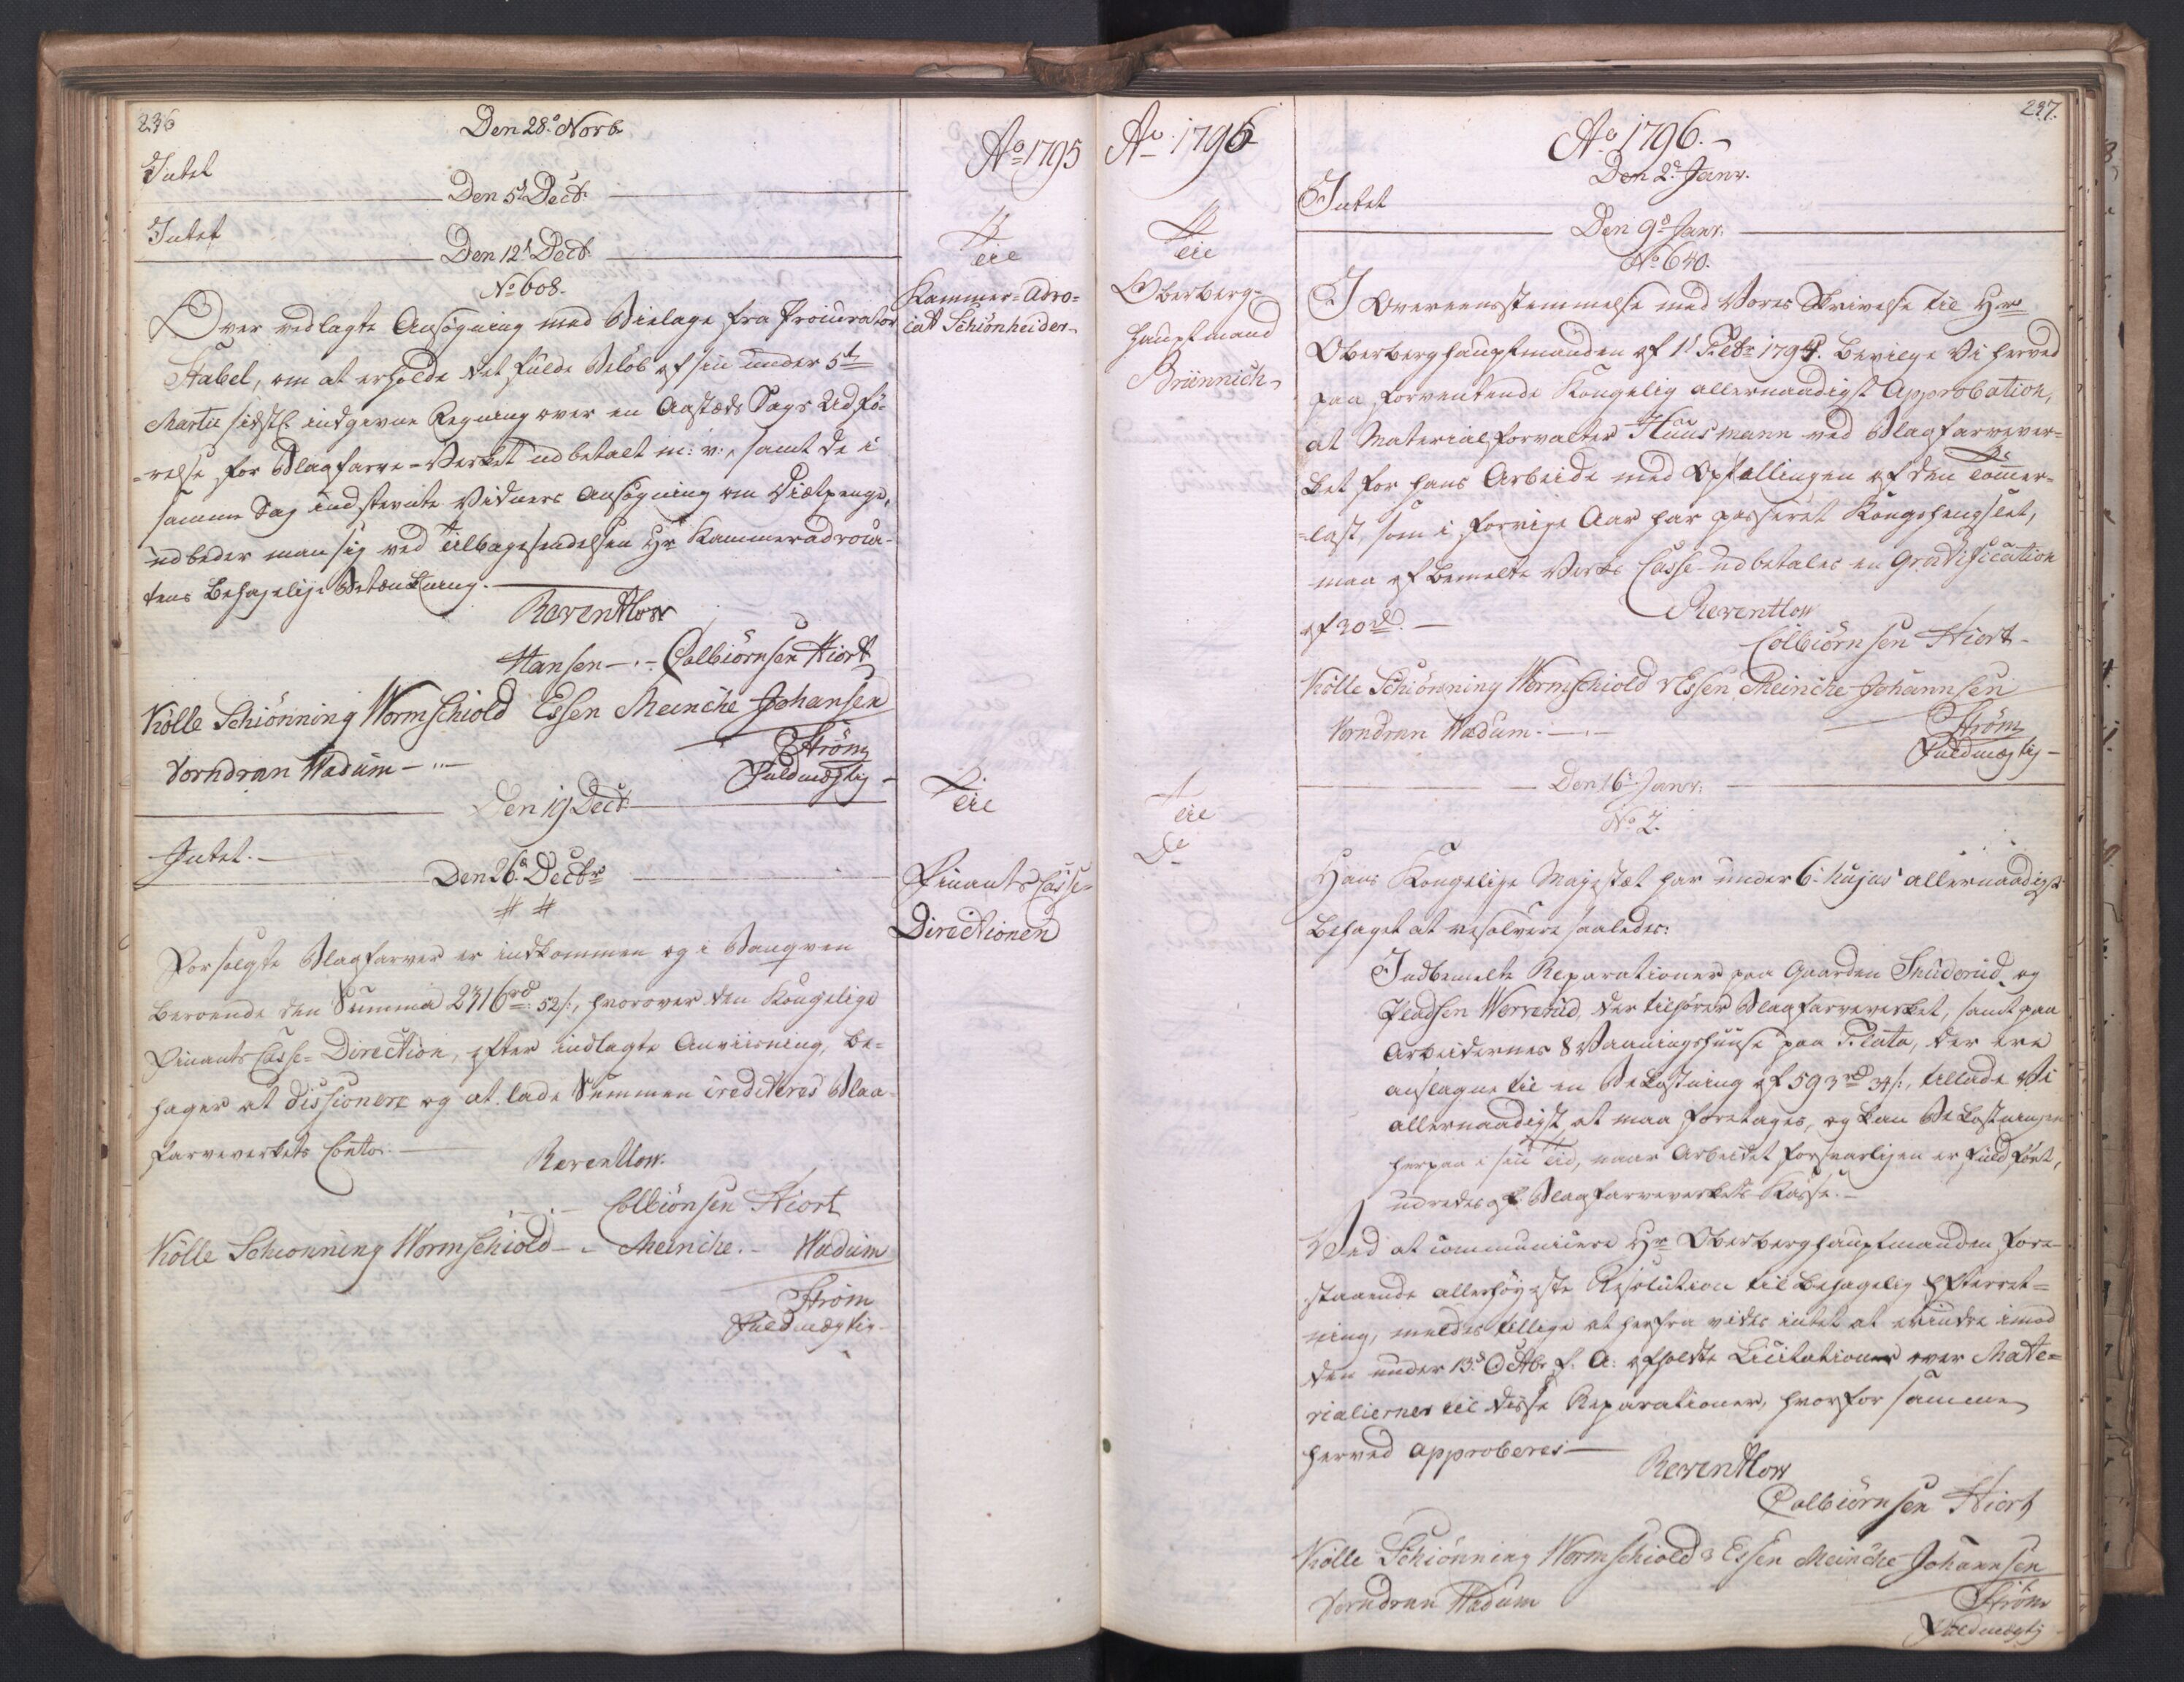 236
Den 28.º Novb.
Aº 1795
Intet
Den 5t Decb.
Intet
Den 12t Decb.
No 608.
Til
Kammer-Advo-
cat Schiönheider
Over vedlagte Ansøgning med Bielage fra Procurator
Stabel, om at erholde det fulde Beløb af sin under 5te
Martii sidstl. indgivne Regning over en Aastæds Sags Udfø-
-relse for Blaafarve-Værket udbetalt m: v:, samt de i
samme Sag indstevnte Vidners Ansøgning om Diætpenge,
udbeder man sig ved Tilbagesendelsen Hr Kammeradvoca-
tens behagelige Betænkning.
Reventlow
Hansen Colbiörnsen Hiort
Kölle Schiönning Wormschiold Essen Meinche Johansen
Vorndran Wadum
Ström
Fuldmægtig
Den 19 Decb.
Til
Intet.
Den 26. Decbr
# #
Finants Casse-
Directionen
For solgte Blaafarver er indkommen og i Banqven
beroende den Summa 2316 rd: 52 s:, hvorover den Kongelige
Finants Casse-Direction, efter indlagte Anviisning, be-
hager at disponere og at lade Summen crediteres Blaa-
farveverkets Conto.
Reventlow.
Colbiönsen Hiort
Kölle Schionning Wormschiold Meinche. Wadum
Ström
Fuldmægtig
Aº 1796
237.
Aº 1796.
Den 2. Janv.
Intet
Den 9. Janv.
No 640.
Til
Oberberg-
hauptmand
Brünnich
I Overeensstemmelse med Vores Skrivelse til Hr
Oberberghauptmanden af 1t Febr 1794. bevilge Vi herved
paa forventende Kongelig allernaadigst Approbation,
at Materialforvalter Huusmann ved Blaafarvever-
ket for hans Arbeide med Optællingen af den Tömmer-
-last, som i forrige Aar har passeret Kongshengslet,
maa af bemelte Verks Casse udbetales en Gratification
af 30 rd.
Reventlow
Colbiörnsen Hiort
Kölle Schiönning Wormschiold vEssen Meinche Johannsen
Vorndran Wadum
Ström
Fuldmægtig
Den 16 Janv.
No 2.
Til
Do
Hans Kongelige Majestæt har under 6. hujus allernaadigst
behaget at resolvere saaledes:
Indbemelte Reparationer paa Gaarden Snuderud og
Pladsen Ververud, der tilhører Blaafarveverket, samt paa
Arbeidernes 8 Vaaningshuuse paa Plata, der ere
anslagne til en Bekostning af 593 rd 34 s:, tillade Vi
allernaadigst at maa foretages, og kan Bekostningen
herpaa i sin Tid, naar Arbeidet forsvarligen er fuldført,
udredes af Blaafarveverkets Kasse.
Ved at communicere Hr Oberberghauptmanden fore-
staaende allerhöyeste Resolution til behagelig Efterret-
ning, meldes tillige at herfra vides intet at erindre imod
den under 13. Octbr f. A: afholdte Licitation over Mate-
rialierne til disse Reparationer, hvorfor samme
herved approberes
Reventlow
Colbiörnsen Hiort
Kölle Schiönning Wormschiold v Essen Meinche Johannsen
Vorndran Wadum
Ström
Fuldmægtig